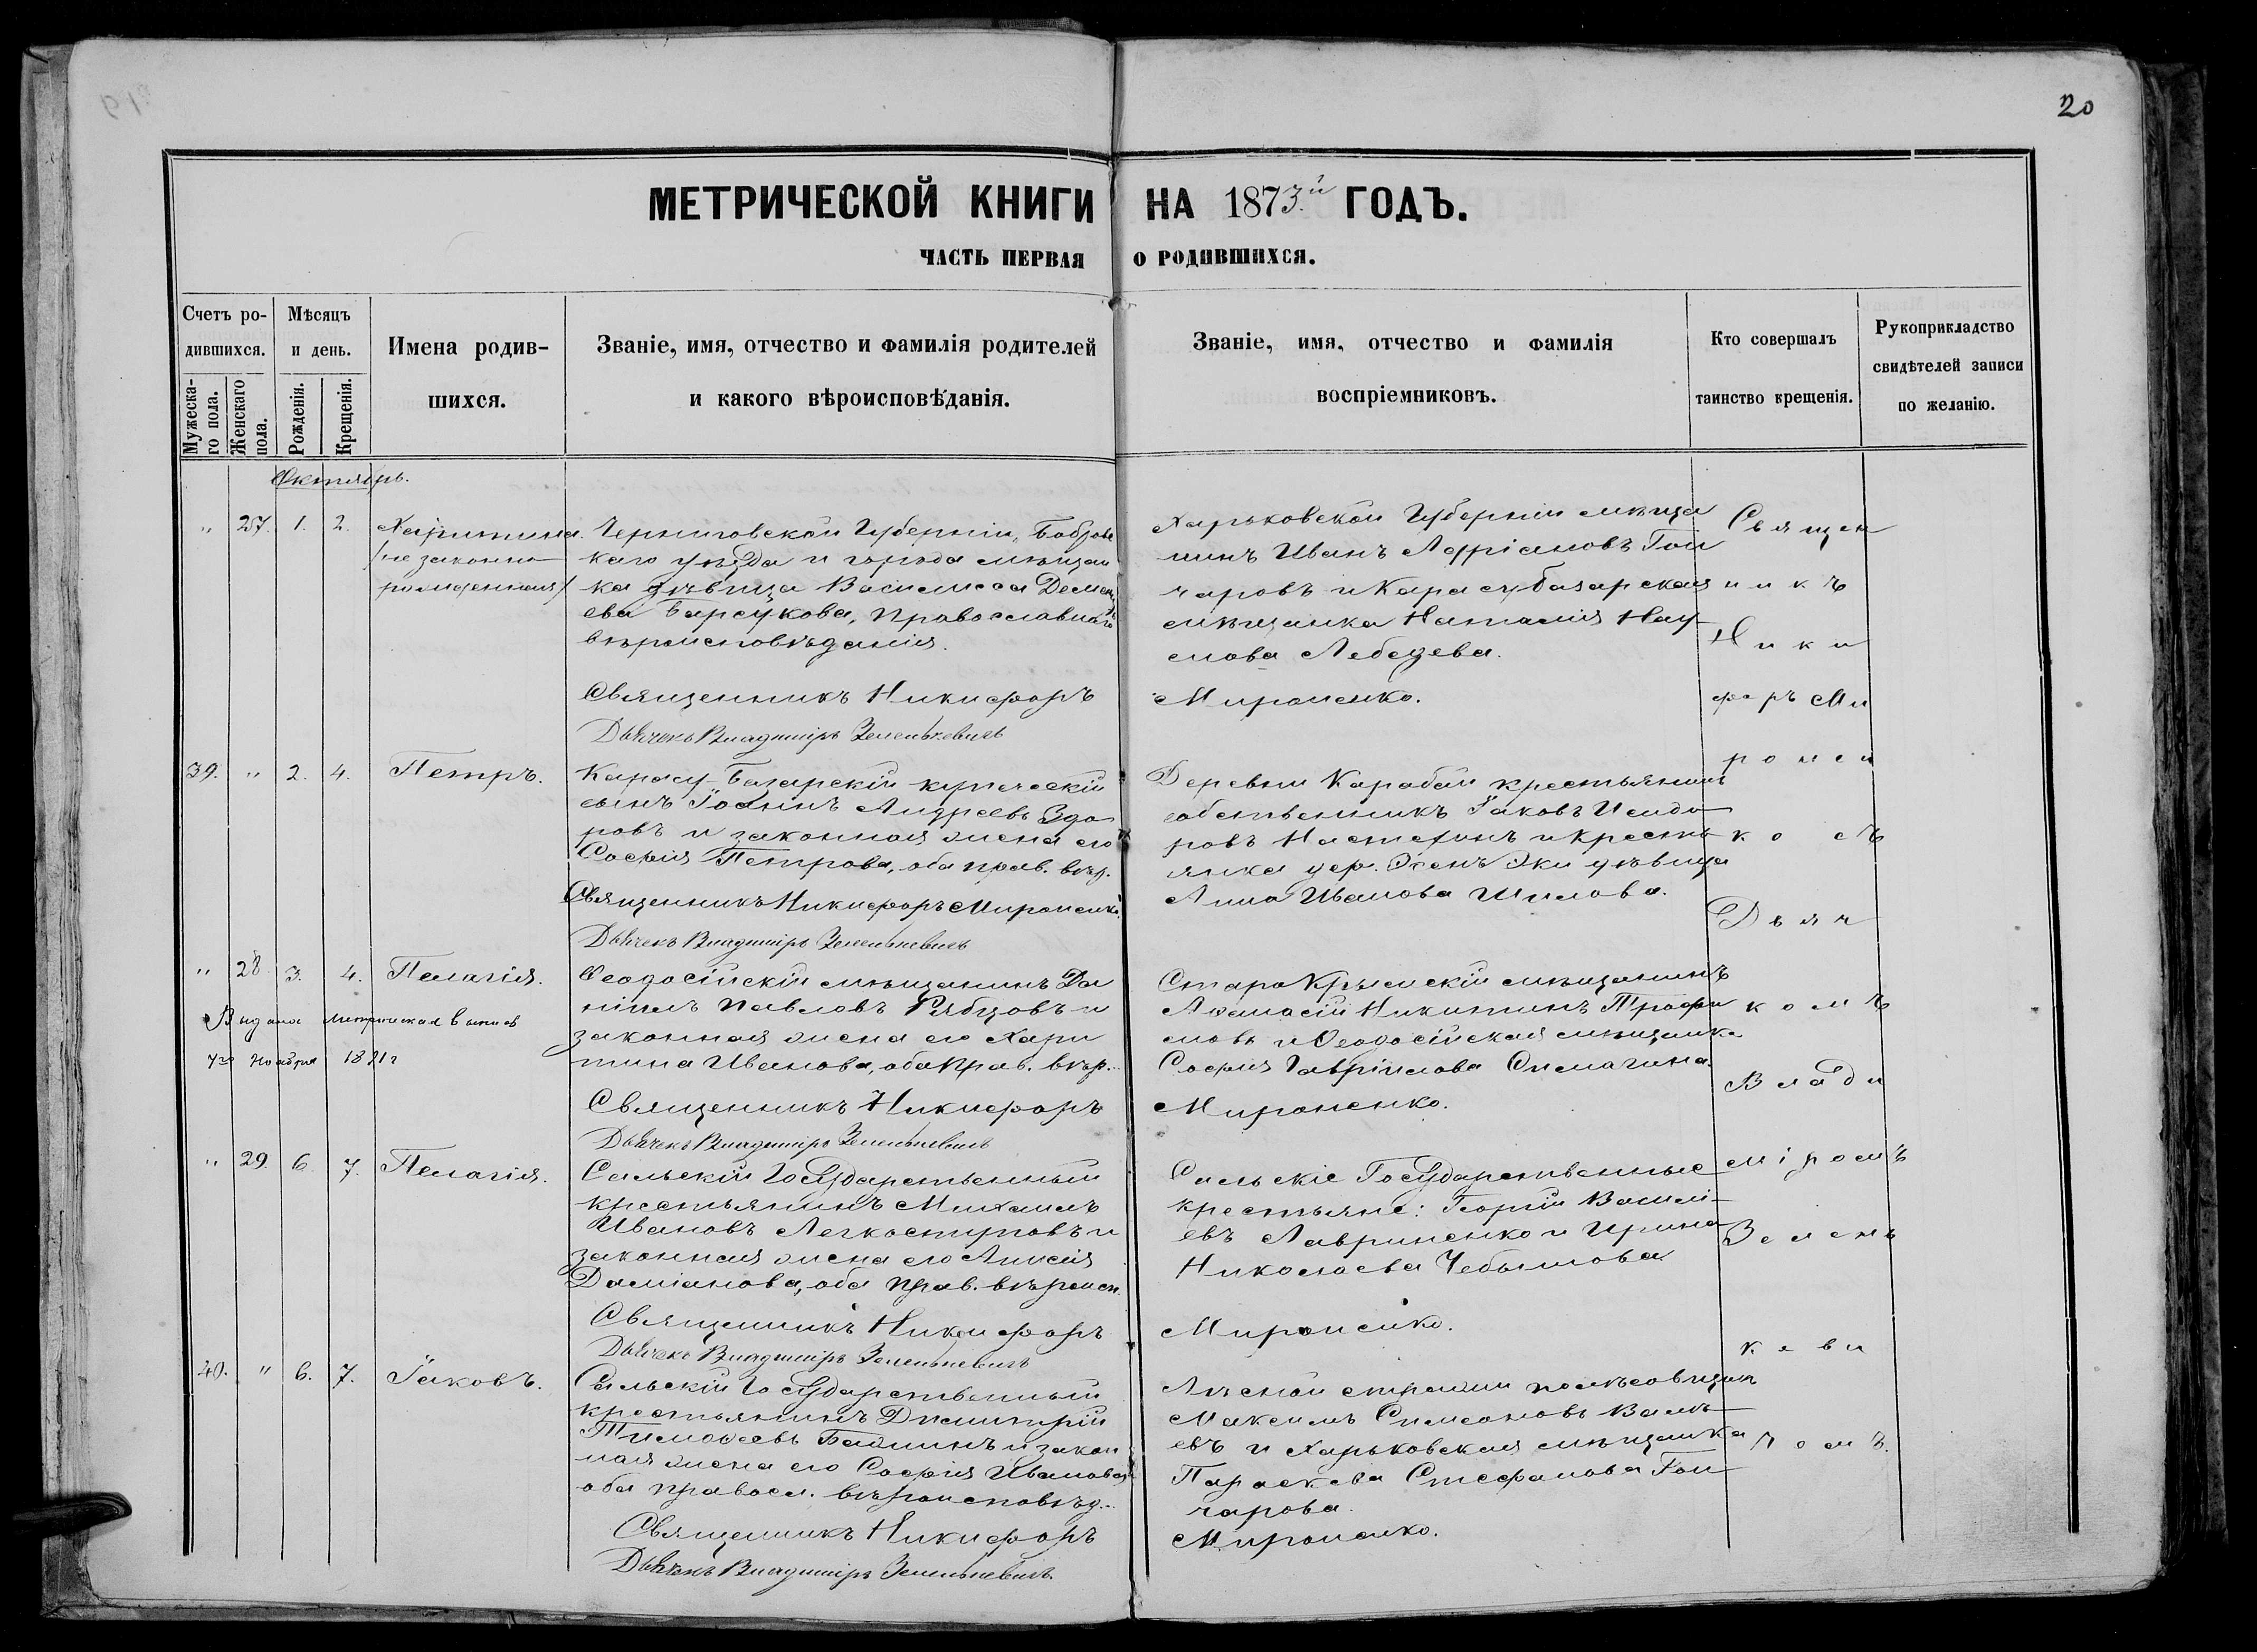 20
МЕТРИЧЕСКОЙ КНИГИ НА 1873й ГОДЪ.
ЧАСТЬ ПЕРВАЯ О РОДИВШИХСЯ.
Счетъ ро-
дившихся.
Мужеска-
го пола.
Женскаго
пола.
Мѣсяцъ
и день.
Рожденія.
Крещенія.
Имена родив-
шихся.
Званіе, имя, отчество и фамилія родителей
и какого вѣроисповѣданія.
Званіе, имя, отчество и фамилія
воспріемниковъ.
Кто совершалъ
таинство крещенія.
Рукоприкладство
свидѣтелей записи
по желанію.
Октябрь.
" 27. 1. 2. Харитина
/не законно
рожденная/
Черниговской Губерніи,
каго уѣзда и города мѣщан
ка дѣвица Василисса Демен
ева Барсукова, Православнаго
вѣроисповѣданія.
Священникъ Никифоръ
Дьячекъ Владиміръ Зеленкевичъ
Харьковской Губерніи мѣща
нинъ Иванъ Адріановъ Гон
чаровъ и Карасубазарская
мѣщанка Наталія Нау
мова Лебедева.
Мироненко.
39. " 2. 4. Петръ.
Карасу-Базарскій купеческій
сынъ Іоаннъ Андреевъ Здо
ровъ и законная жена его
Софія Петрова, оба прав. вѣр.
Священникъ Никифоръ Мироненко.
Дьячекъ Владиміръ Зеленкевичъ
Деревни Карабай крестьянинъ
собственникъ Іаковъ Исидо
ровъ и кресть
янка дер. Эки дѣвица
Анна Иванова Шилова.
" 28. 3. 4. Пелагія.
Выдана метрическая выпись
7го Ноября 1891 г
Ѳеодосійскій мѣщанинъ Да
ніилъ Павловъ Рябцовъ и
законная жена его Хари
тина Иванова, оба Прав. вѣр.
Священникъ Никифоръ
Дьячекъ Владиміръ Зеленкевичъ
СтароКрымскій мѣщанинъ
Аѳанасій Никитинъ Трофи
мовъ и Ѳеодосійская мѣщанка
Софія Гавріилова Симагина.
Мироненко.
" 29. 6. 7. Пелагія.
Сальскій Государственный
крестьянинъ Михаилъ
Ивановъ Легкоступовъ и
законная жена его Анисія
Даміанова, оба прав. вѣроисп.
Священникъ Никифоръ
Дьячекъ Владиміръ Зеленкевичъ
Сальскіе Государственные
крестьяне: Георгій Васили
евъ Лавриненко и Ирина
Николаева Чебышова
Мироненко.
40. " 6. 7. Іаковъ.
Сальскій Государственный
крестьянинъ Димитрій
Тимоѳеевъ Бажинъ и закон
ная жена его Софія Иванова,
оба правосл. вѣроисповѣд.
Священникъ Никифоръ
Дьячекъ Владиміръ Зеленкевичъ
Лѣсной стражи
Максимъ Симеоновъ
евъ и Харьковская мѣщанка
Параскева Стефанова Гон
чарова.
Мироненко.
Священ
никъ
Ники
форъ Ми
ронен
ко съ
Дьяч
комъ
Влади
міромъ
Зелень
кеви
чомъ.